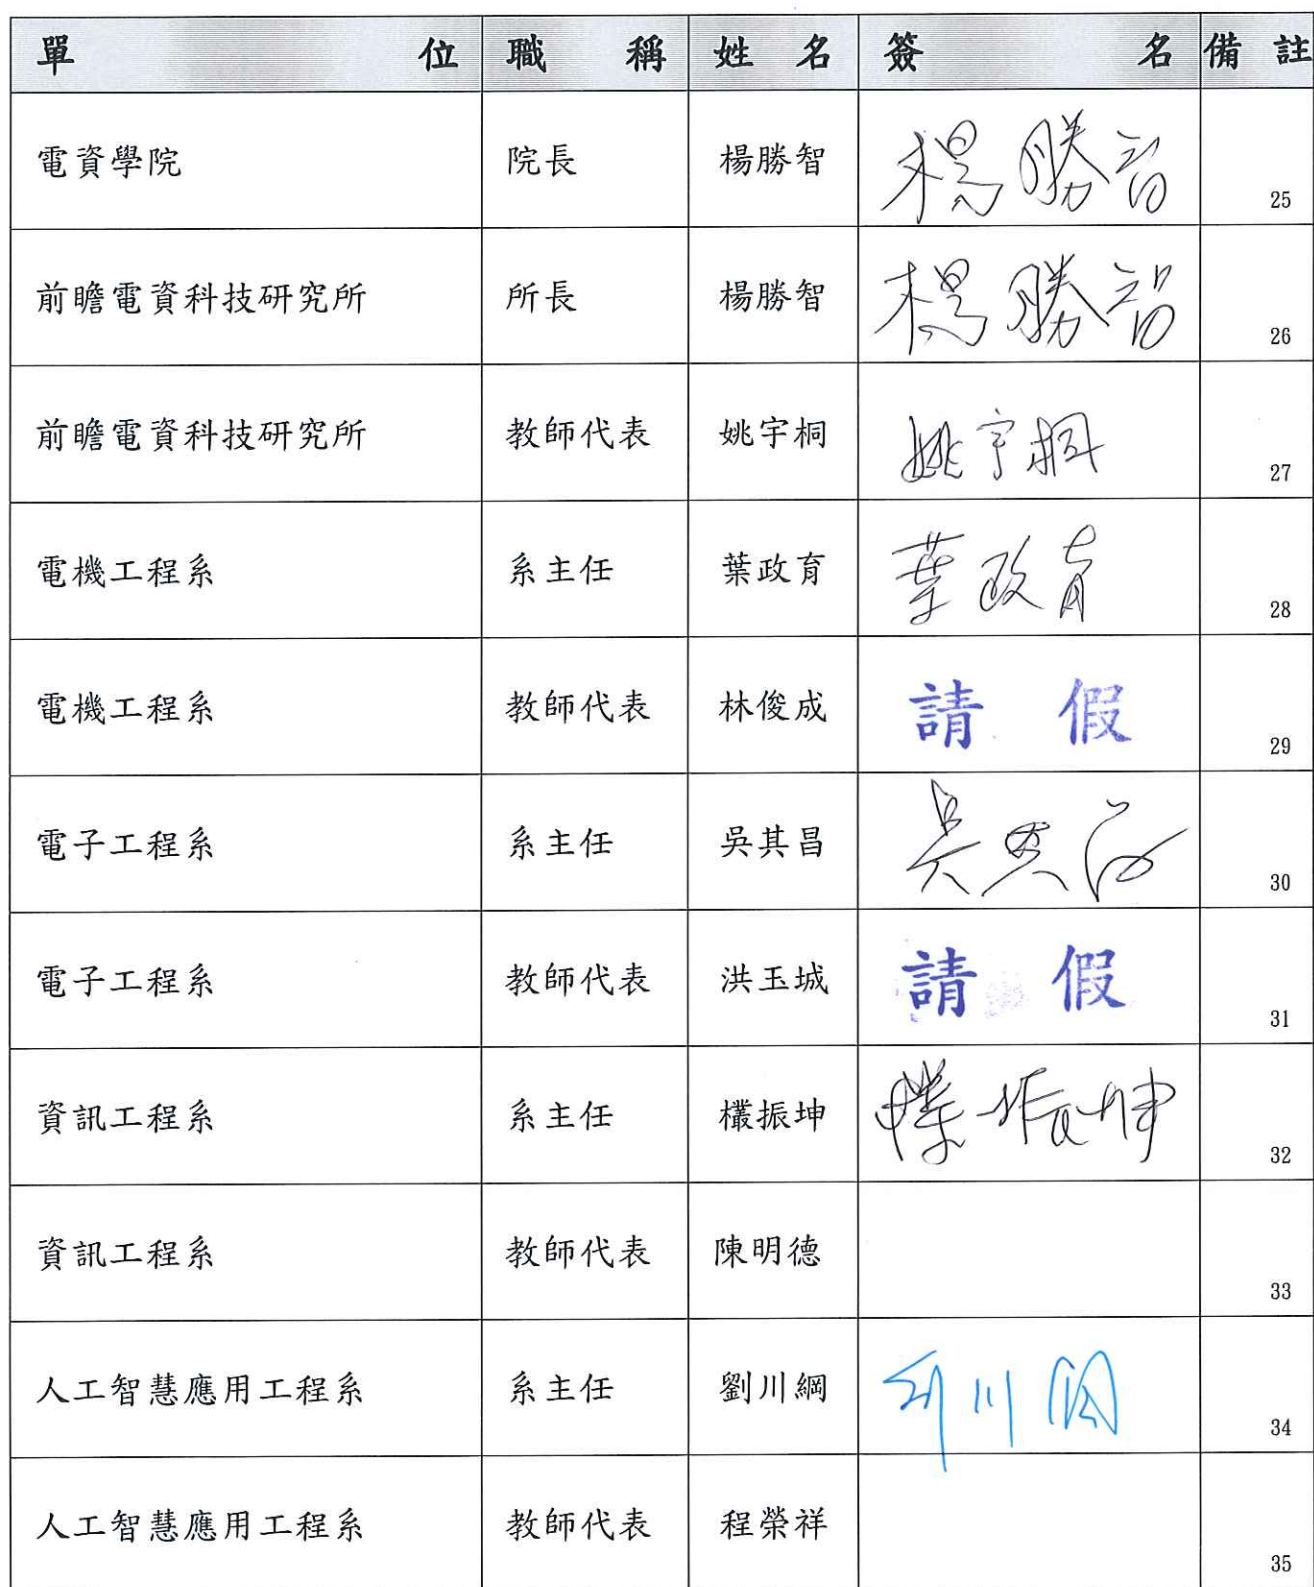 單位 職稱 姓名 簽名 備註
電資學院 院長 楊勝智 楊勝智 25
前瞻電資科技研究所 所長 楊勝智 楊勝智 26
前瞻電資科技研究所 教師代表 姚宇桐 姚宇桐 27
電機工程系 系主任 葉政育 葉政育 28
電機工程系 教師代表 林俊成 請假 29
電子工程系 系主任 吳其昌 吳其昌 30
電子工程系 教師代表 洪玉城 請假 31
資訊工程系 系主任 欉振坤 欉振坤 32
資訊工程系 教師代表 陳明德 33
人工智慧應用工程系 系主任 劉川綱 刘川綱 34
人工智慧應用工程系 教師代表 程榮祥 35